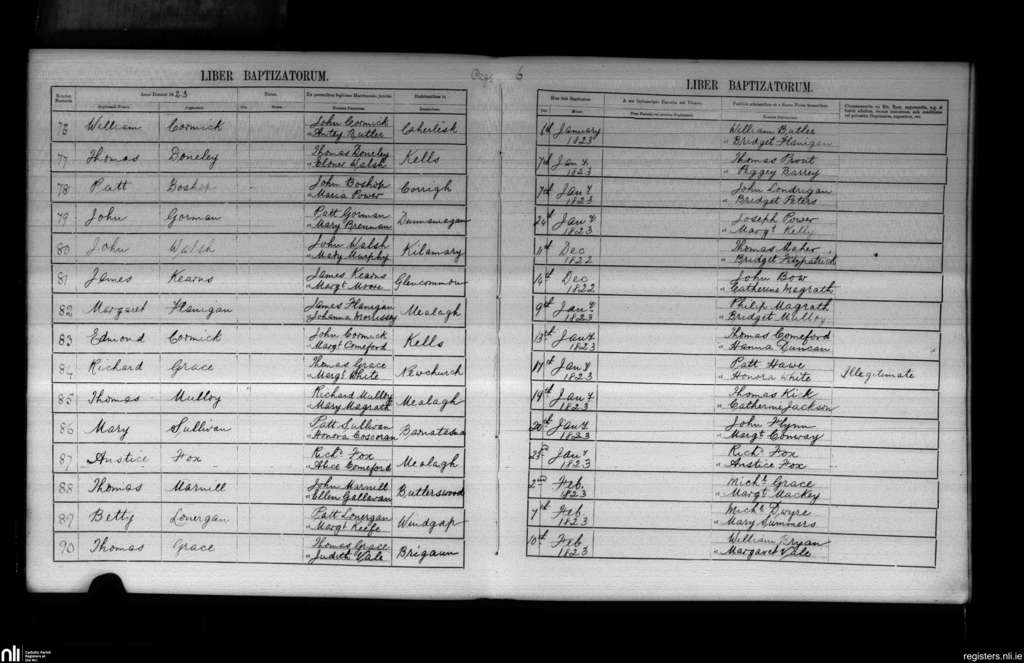 Page 6
LIBER BAPTIZATORUM.
LIBER BAPTIZATORUM.
Anno Domini 1823
76 William Cormick John Cormick Caherlesk 6th January William Butler
" Antey Butler 1823 " Bridget Flanigan
77 Thomas Doneley Thomas Doneley Kells 7th Jany. Thomas Prout
" Elonor Walsh 1823 " Peggey Barrey
78 Patt Boshop John Boshop Corrigh 7th Jany John Londrigan
" Maria Power 1823 " Bridget Peters
79 John Gorman Patt Gorman Dunnamagan 24th Jany Joseph Power
" Mary Brennan 1823 " Margt. Kelly
80 John Walsh John Walsh Kilamary 11th Dec Thomas Maher
" Mary Murphy 1822 " Bridget Fitzpatrick
81 James Kearns James Kearns Glencommon 14th Dec John Bow
" Margt Moore 1822 " Catherine Magrath
82 Margaret Flanigan James Flanigan Mealagh 9th Jany Philip Magrath
" Johanna Morrissey 1823 " Bridget Mulloy
83 Edmond Cormick John Cormick Kells 13th Jany Thomas Comeford
" Margt. Comeford 1823 " Hanna Duncan
84 Richard Grace Thomas Grace Newchurch 17th Jany Patt Hawe Illegitimate
" Margt. White 1823 " Honora White
85 Thomas Mulloy Richard Mulloy Mealagh 19th Jany Thomas Kirk
" Mary Magrath 1823 " Catherine Jackson
86 Mary Sullivan Patt Sullivan Barnatasna 20th Jany John Flynn
" Honora Corcoran 1823 " Margt. Conway
87 Anstice Fox Richd. Fox Mealagh Jany Richd. Fox
" Alice Comeford 1823 " Anstice Fox
88 Thomas Marnell John Marnell Butlerswood 2nd Feb. Michl. Grace
" Ellen Gallavan 1823 " Margt Mackey
89 Betty Lonergan Patt Lonergan Windgap 7th Feb. Michl. Dwyre
" Margt. Keefe 1823 " Mary Summers
90 Thomas Grace Thomas Grace Brigaun 10th Feb. William Ryan
" Judith Vale 1823 " Margaret Vale
nli
Catholic Parish
Registers at
the NLI
registers.nli.ie